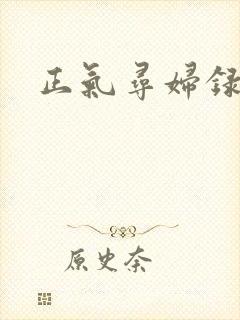 正氣尋婦録
原史奈